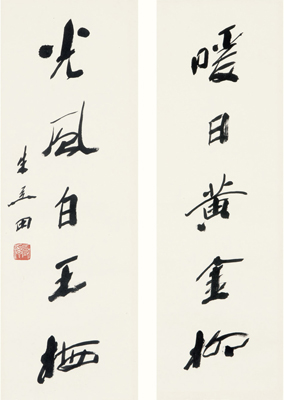 暖日黄金柳
光风白玉梅
朱豆田